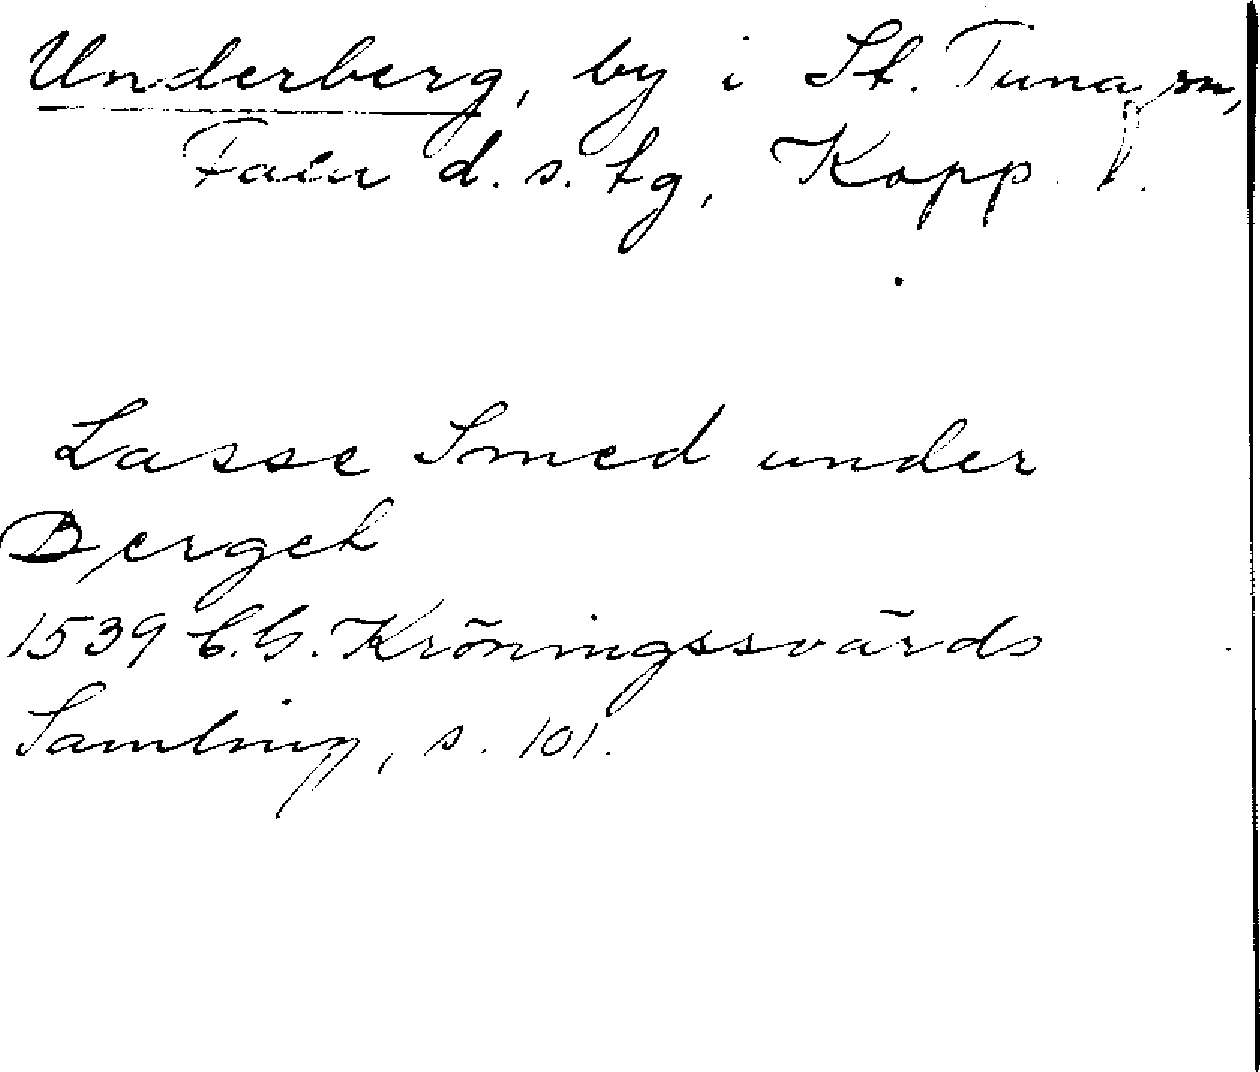 Underberg, by i St. Tuna sn,
Falu d. s. tg, Kopp. l.
Lasse Smed under
Berget
1539 C.G. Kröningssvärds
Samling, s. 101.